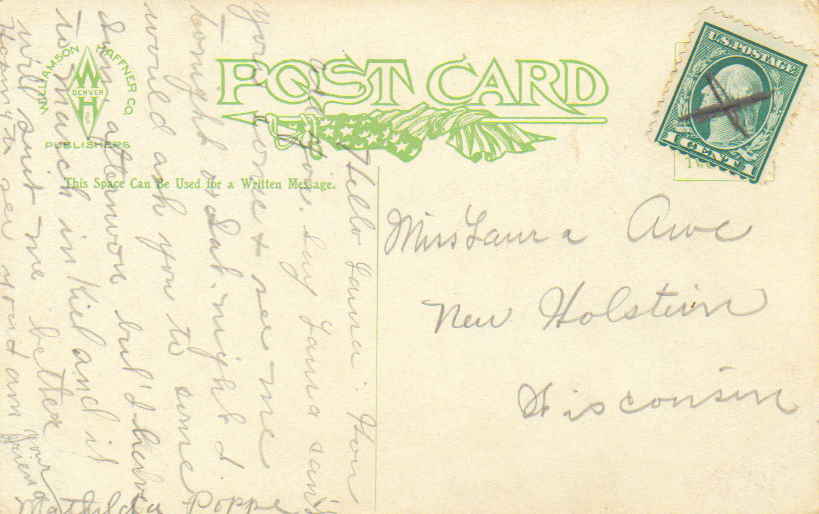 WILLIAMSON HAFFNER CO.
W
DENVER
H
PUBLISHERS
POST CARD
This Space Can Be Used for a Written Message.
U.S. POSTAGE
1 CENT 1
Miss Laura Awe
New Holstein
Wisconsin
Hello Laura: How
are you. Say Laura can't
you come & see me
tonight or Sat. night I
would ask you to some
Sun. afternoon but I have
to march in Kiel and it
will suit me better
Hoping to see you I am
your friend
Mathilda Poppe